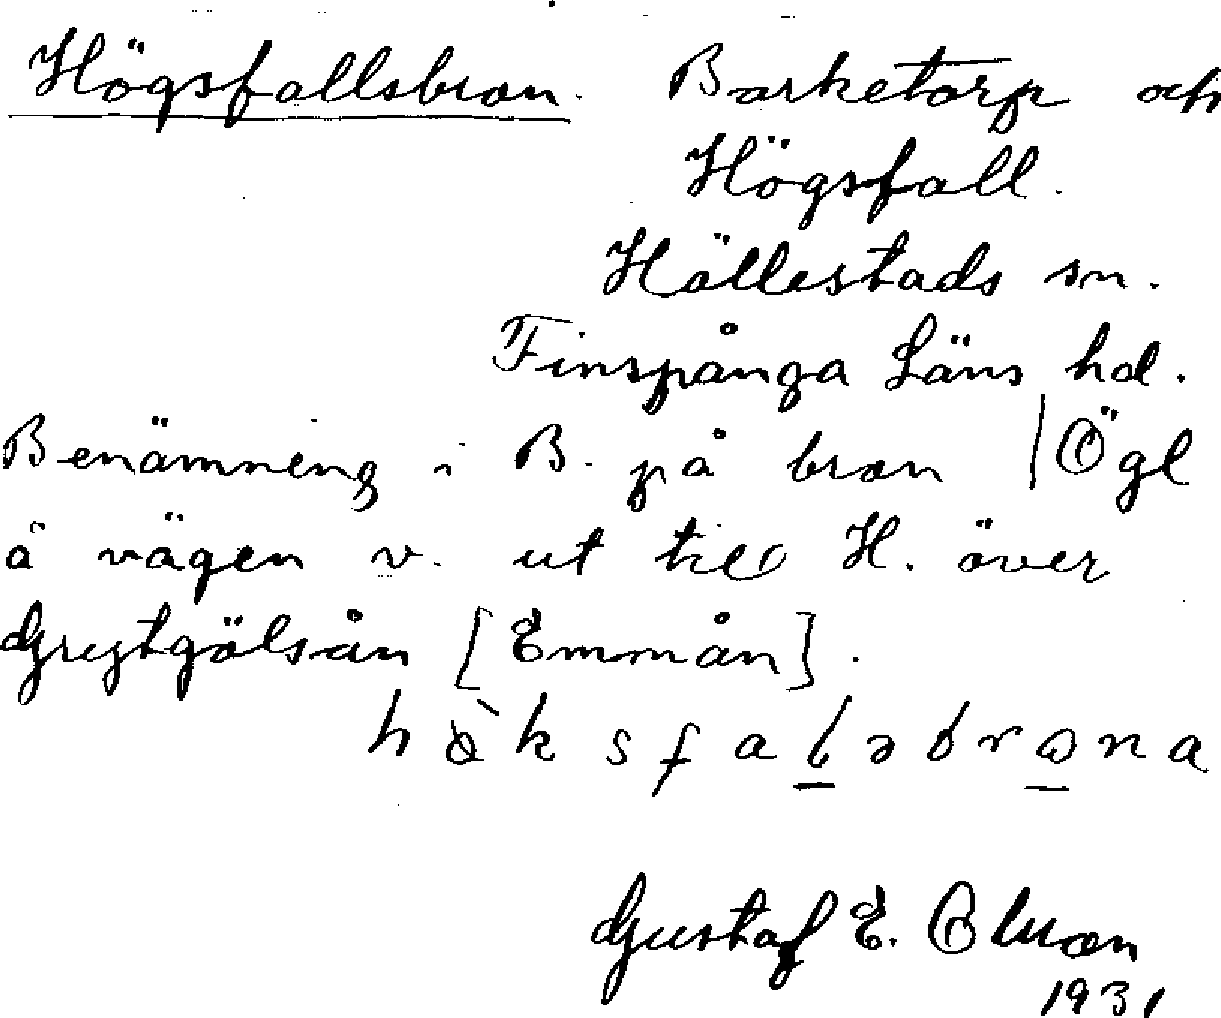 Högsfallsbron. Barketorp och
Högsfall.
Hällestads sn.
Finspånga Läns hd.
Benämning i B. på bron | Ögl
å vägen v. ut till H. över
Grytgölsån [Emmån].
Gustaf E. Olsson
1931